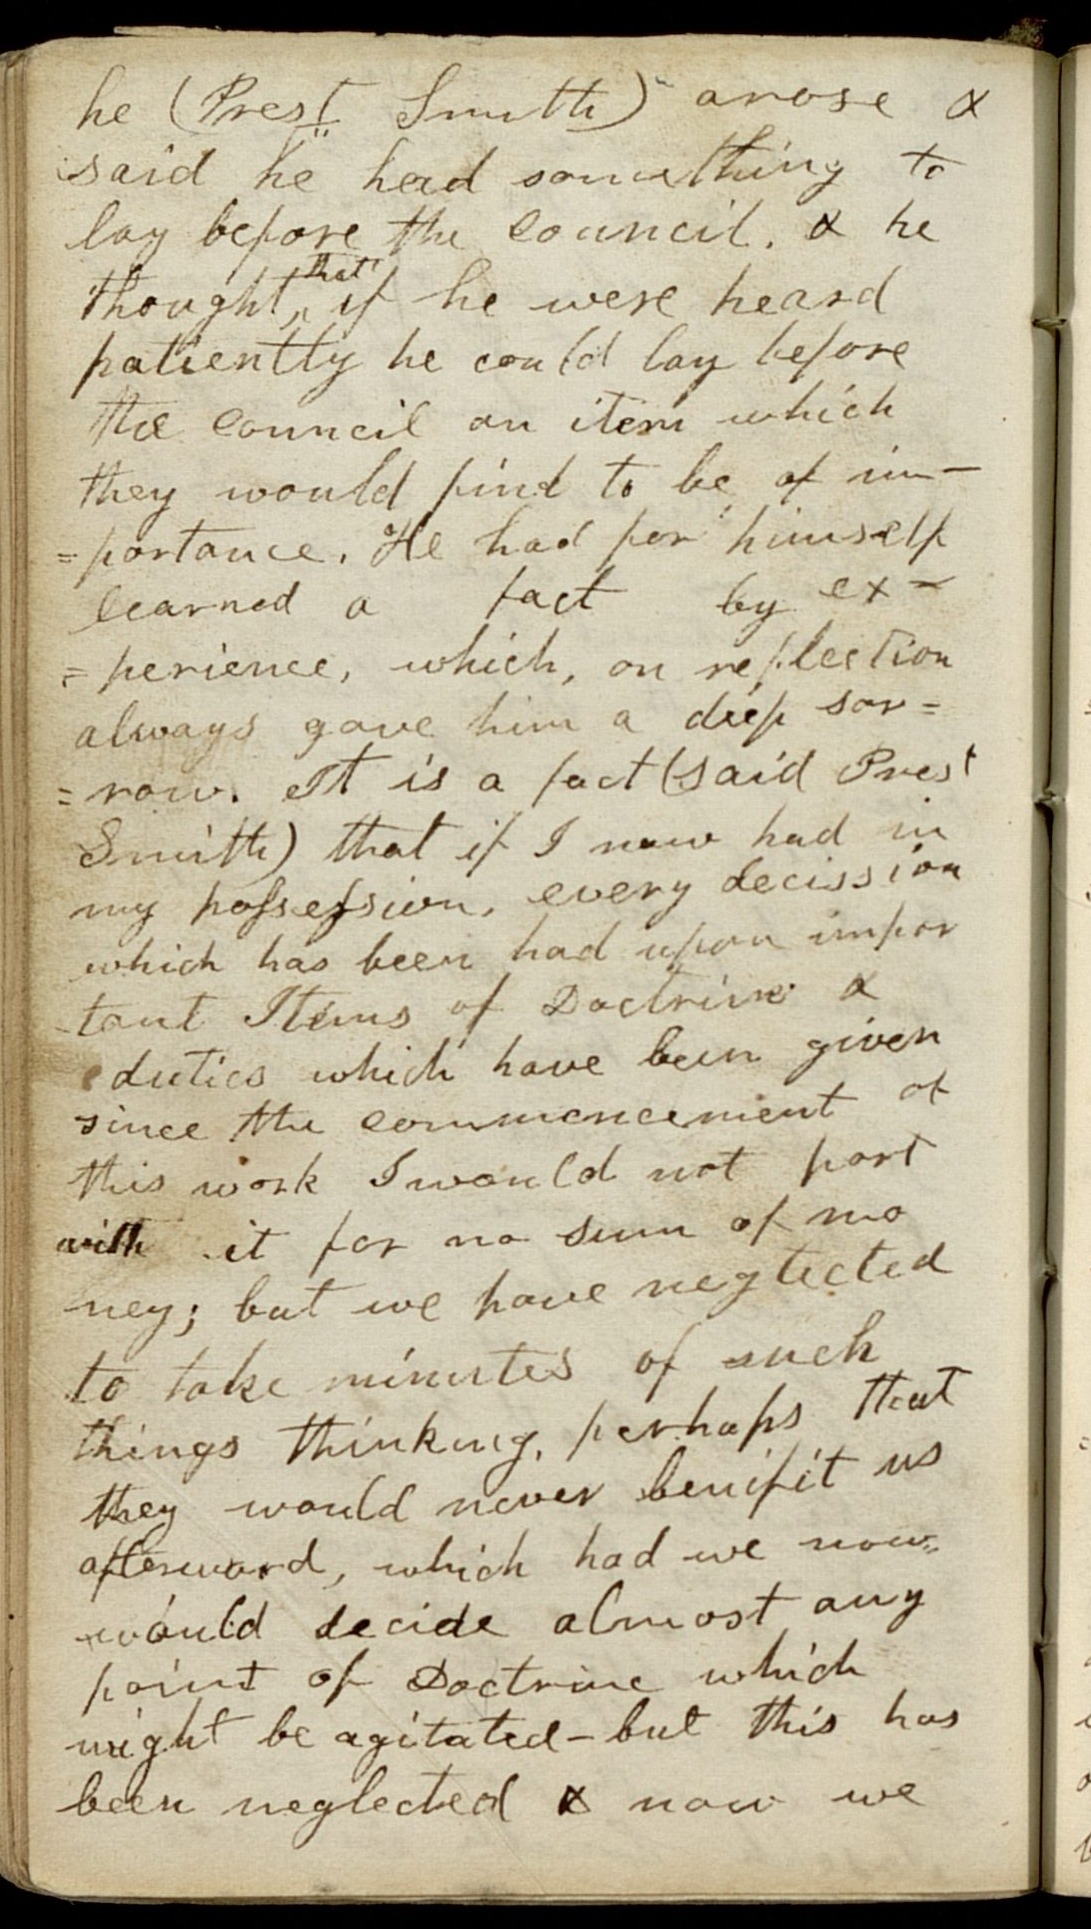 he (Prest Smith) arose &
said he had something to
lay before the council. & he
thought, that if he were heard
patiently he could lay before
the council an item which
they would find to be of im-
=portance. He had for himself
learned a fact by ex=
=perience, which, on reflection
always gave him a deep sor=
=row. It is a fact (said Prest
Smith) that if I now had in
my possession, every decission
which has been had upon impor
tant Items of Doctrine &
duties which have been given
since the commencement of
this work I would not part
with it for no sum of mo
ney; but we have neglected
to take minutes of such
things thinking, perhaps that
they would never benifit us
afterward, which had we now,
would decide almost any
point of Doctrine which
might be agitated-but this has
been neglected & now we